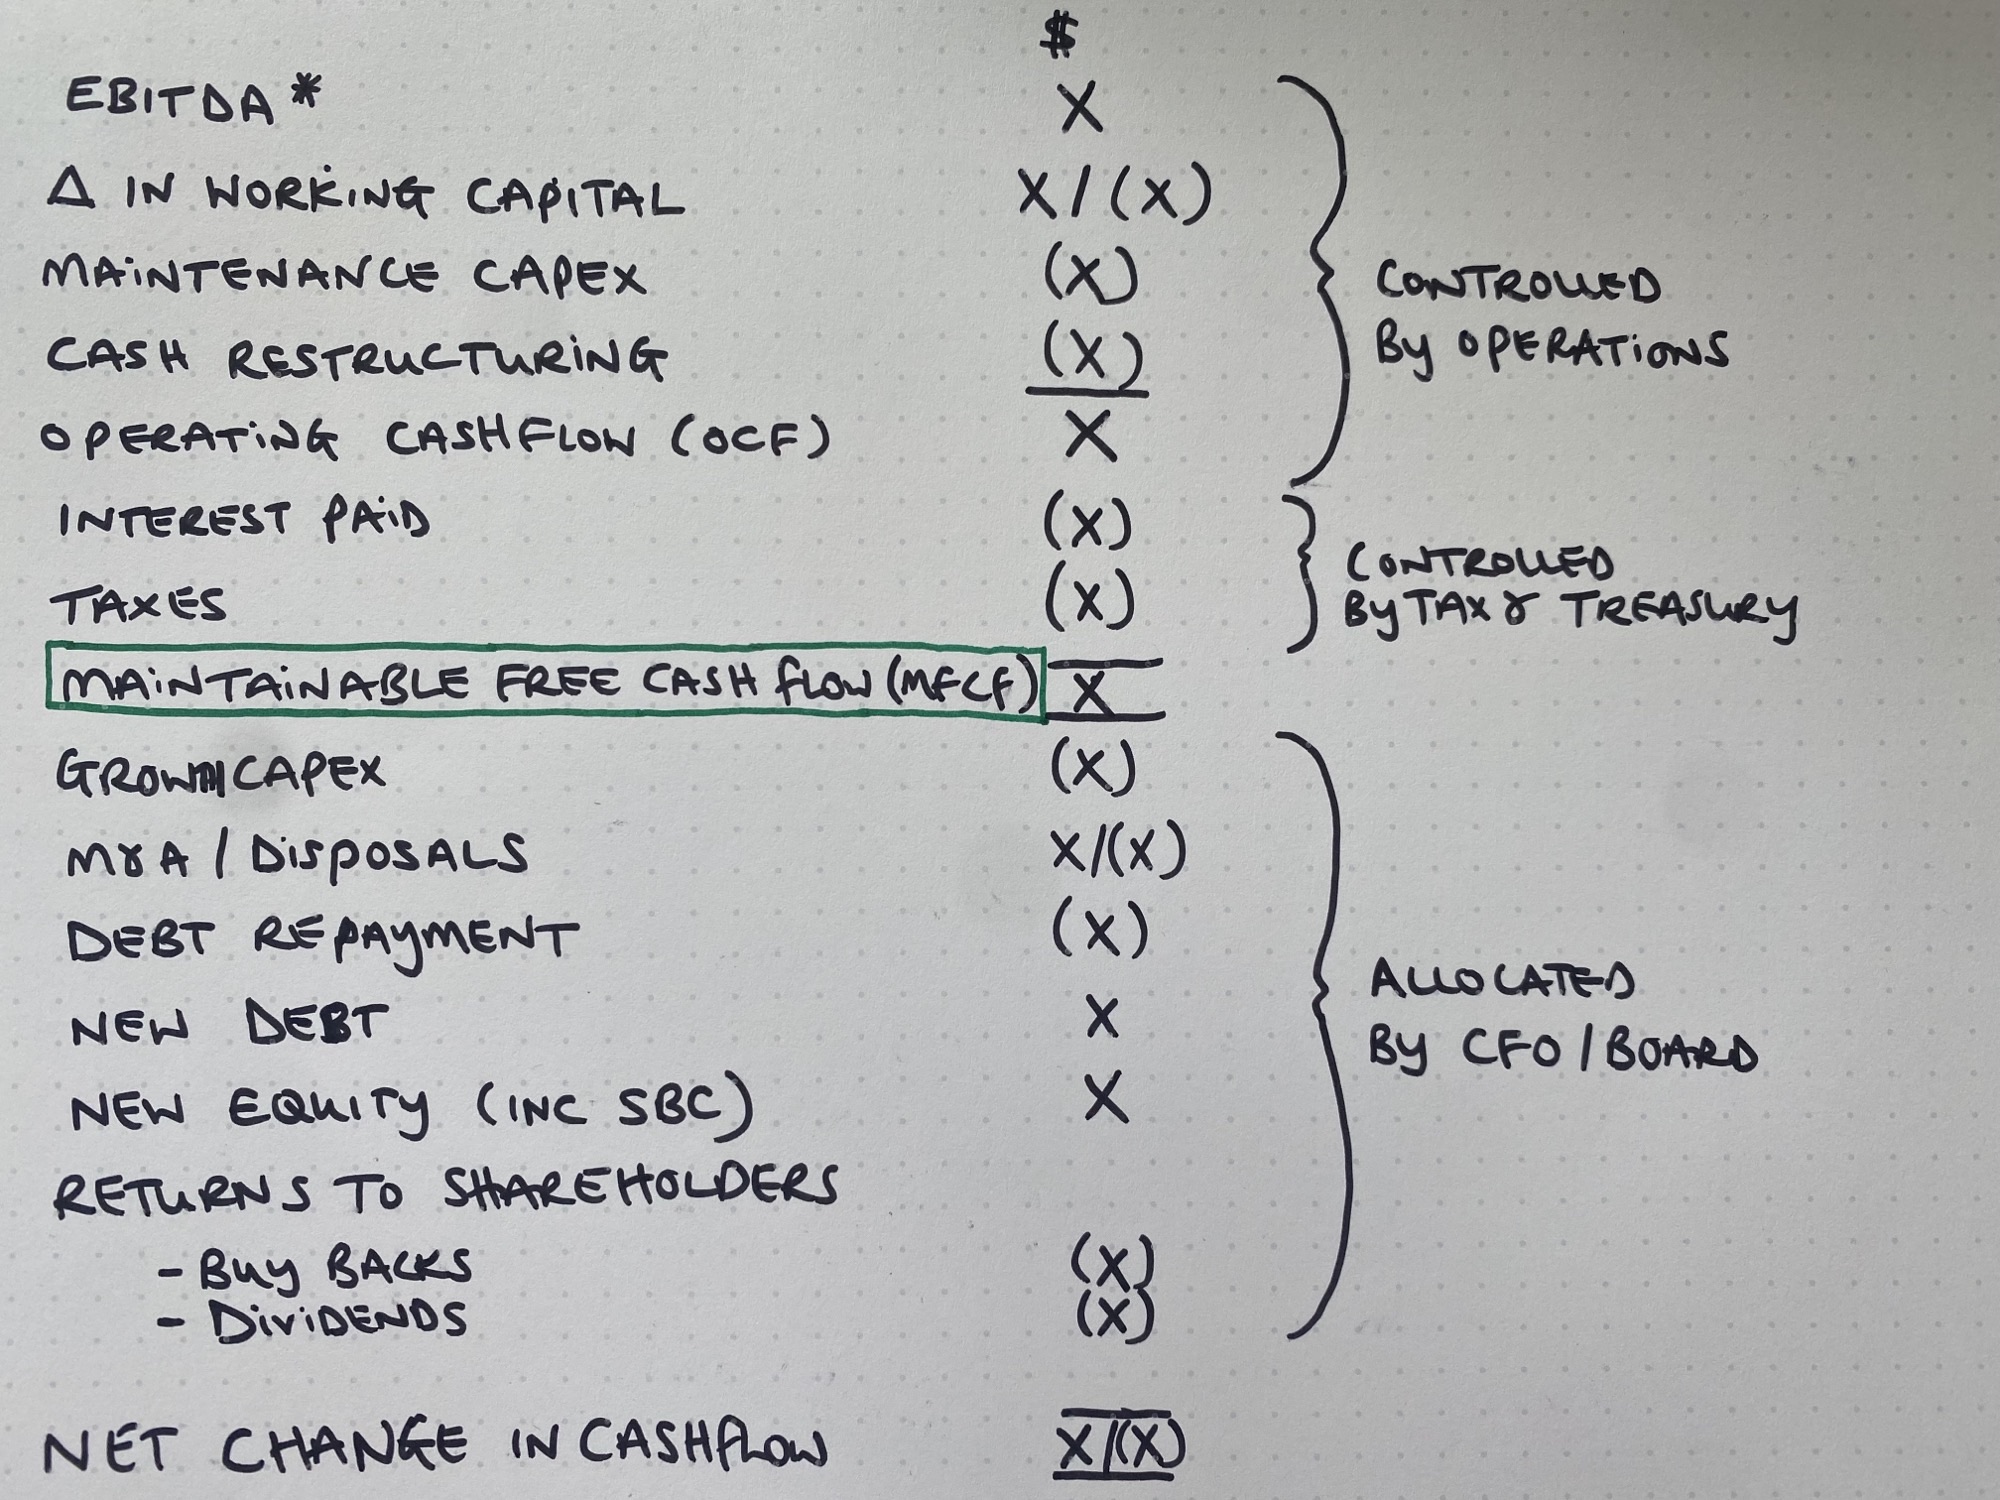 $
EBITDA* X
Δ IN WORKING CAPITAL X/(X)
MAINTENANCE CAPEX (X)
CASH RESTRUCTURING (X)
CONTROLLED
BY OPERATIONS
OPERATING CASHFLOW (OCF) X
INTEREST PAID (X)
TAXES (X)
CONTROLLED
BY TAX & TREASURY
MAINTAINABLE FREE CASH FLOW (MFCF) X
GROWTH CAPEX (X)
M&A / DISPOSALS X/(X)
DEBT REPAYMENT (X)
NEW DEBT X
NEW EQUITY (INC SBC) X
ALLOCATED
BY CFO / BOARD
RETURNS TO SHAREHOLDERS
- BUY BACKS (X)
- DIVIDENDS (X)
NET CHANGE IN CASHFLOW X/(X)